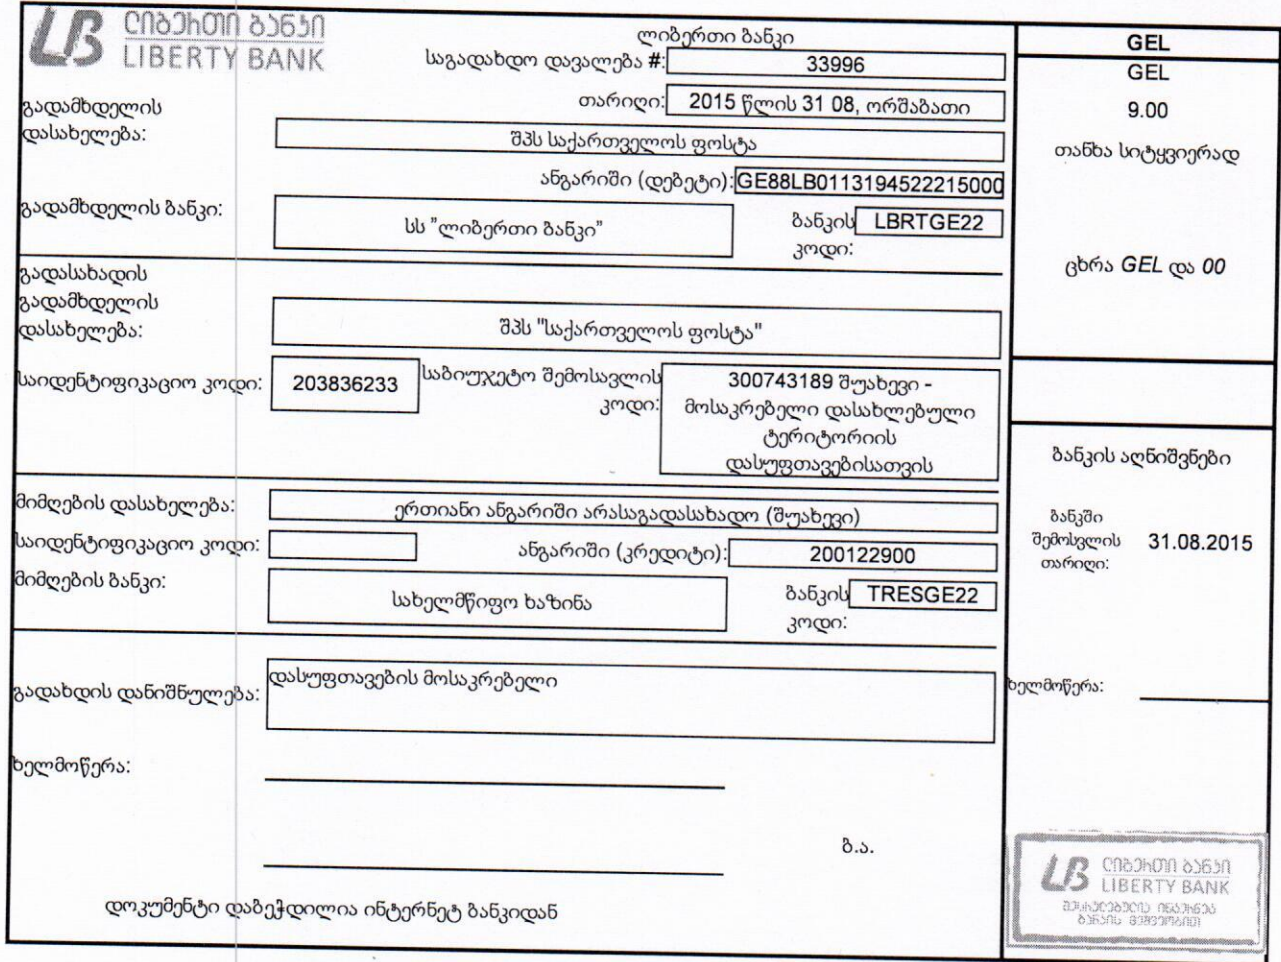 ლიბერთი ბანკი
LIBERTY BANK
ლიბერთი ბანკი
საგადახდო დავალება #: 33996
თარიღი: 2015 წლის 31 08, ორშაბათი
გადამხდელის
დასახელება: შპს საქართველოს ფოსტა
ანგარიში (დებეტი): GE88LB0113194522215000
გადამხდელის ბანკი: სს "ლიბერთი ბანკი" ბანკის LBRTGE22
კოდი:
გადასახადის
გადამხდელის
დასახელება: შპს "საქართველოს ფოსტა"
საიდენტიფიკაციო კოდი: 203836233 საბიუჯეტო შემოსავლის 300743189 შუახევი -
კოდი: მოსაკრებელი დასახლებული
ტერიტორიის
დასუფთავებისათვის
მიმღების დასახელება: ერთიანი ანგარიში არასაგადასახადო (შუახევი)
საიდენტიფიკაციო კოდი: ანგარიში (კრედიტი): 200122900
მიმღების ბანკი: სახელმწიფო ხაზინა ბანკის TRESGE22
კოდი:
გადახდის დანიშნულება: დასუფთავების მოსაკრებელი
ხელმოწერა:
ბ.ა.
დოკუმენტი დაბეჭდილია ინტერნეტ ბანკიდან
GEL
GEL
9.00
თანხა სიტყვიერად
ცხრა GEL და 00
ბანკის აღნიშვნები
ბანკში
შემოსვლის 31.08.2015
თარიღი:
ხელმოწერა:
LB ლიბერთი ბანკი
LIBERTY BANK
შესრულებულია ინტერნეტ
ბანკის მეშვეობით